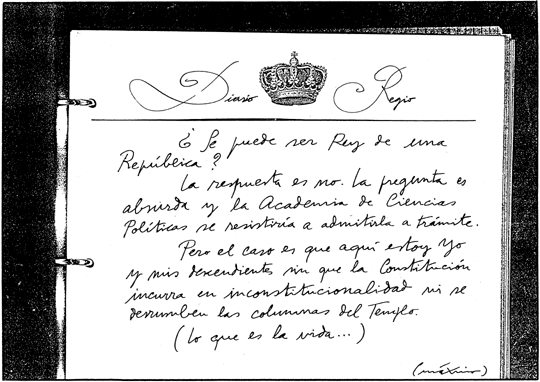 Diario Regio
¿Se puede ser Rey de una
República?
La respuesta es no. La pregunta es
absurda y la Academia de Ciencias
Políticas se resistiría a admitirla a trámite.
Pero el caso es que aquí estoy Yo
y mis descendientes sin que la Constitución
incurra en inconstitucionalidad ni se
derrumben las columnas del Templo.
(Lo que es la vida...)
(máximo)